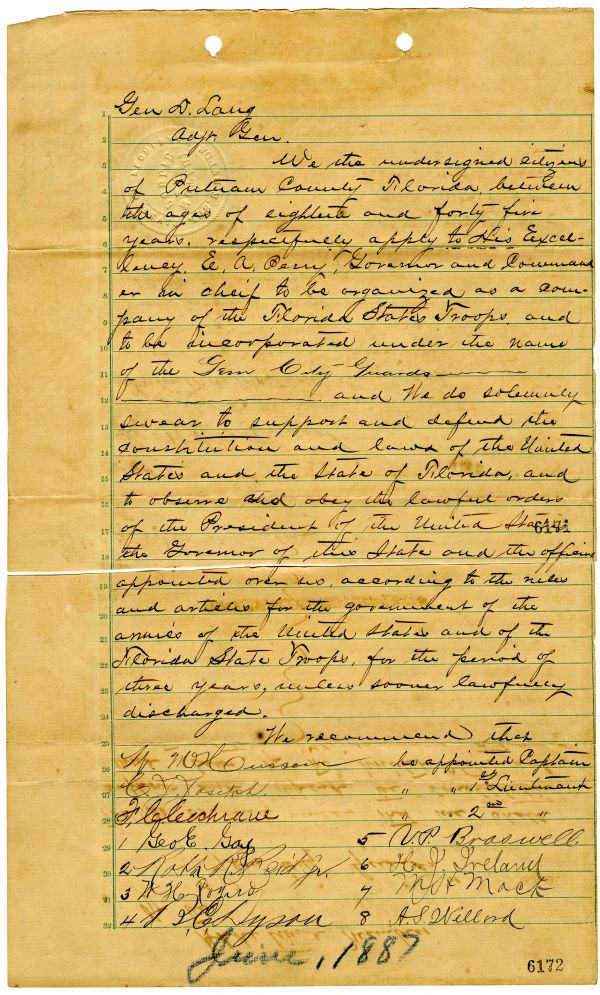 Gen D. Lang
Adjt. Gen.
We the undersigned citizens
of Putnam County Florida, between
the ages of eighteen and forty five
years, respectfully apply to His Excel-
lency, E. A. Perry, Governor and Command
er in cheif to be organized as a com-
pany of the Florida State Troops, and
to be incorporated under the name
of the Gem City Guards
and We do solemnly
swear to support and defend the
constitution and laws of the United
States and the State of Florida, and
to observe and obey the lawful orders
of the President of the United States
6171
the Governor of this State and the officers
appointed over us, according to the rules
and articles for the government of the
armies of the United States and of the
Florida State Troops, for the period of
three years, unless sooner lawfully
discharged.
We recommend that
be appointed Captain
C. Joseph. " " 1st Lieutenant
F. C. Cochrane " " 2nd "
1 Geo E. Gay 5 V. P. Braswell.
2 6 H. J. Ireland
3 W. H. 7 M. H. Mack
4 Dyson 8 A. S. Willard
June, 1887
6172